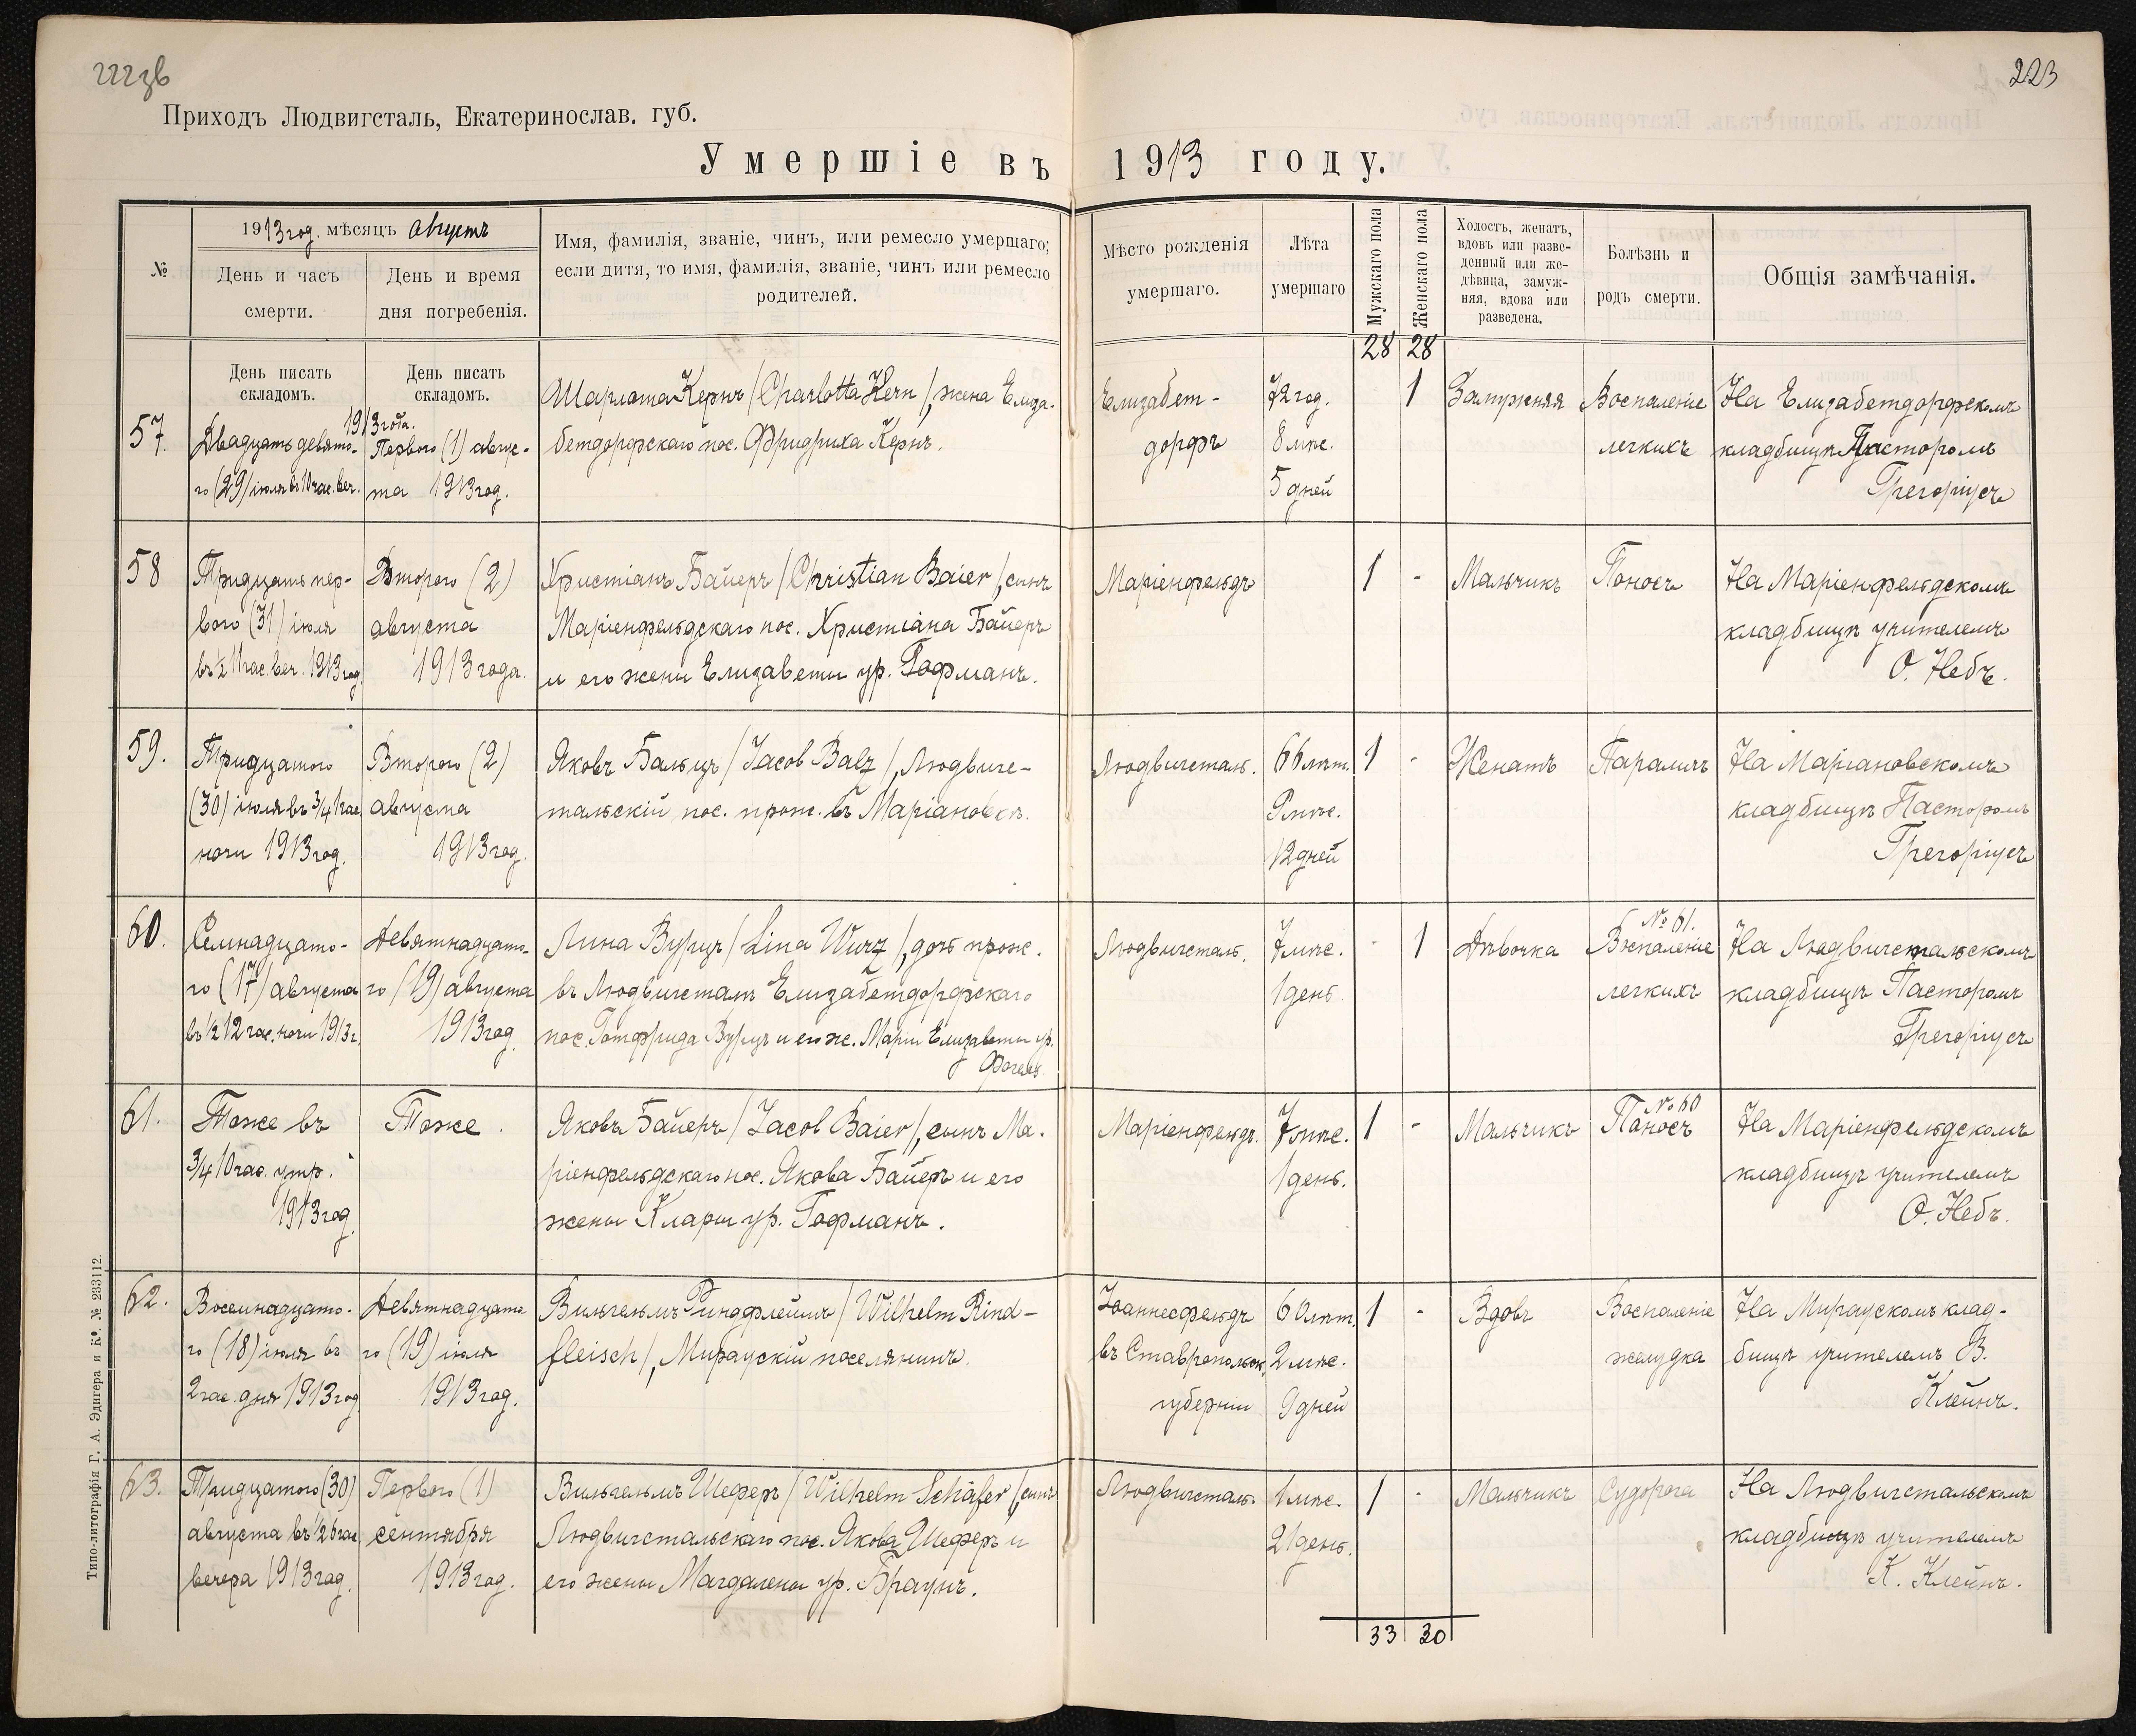 222зв
223
Приходъ Людвигсталь, Екатеринослав. губ.
Умершіе въ 1913 году.
№
1913 год. мѣсяцъ августъ
День и часъ смерти.
День и время дня погребенія.
Имя, фамилія, званіе, чинъ, или ремесло умершаго;
если дитя, то имя, фамилія, званіе, чинъ или ремесло
родителей.
Мѣсто рожденія
умершаго.
Лѣта
умершаго
Мужскаго пола
Женскаго пола
Холостъ, женатъ,
вдовъ или разве-
денный или же-
дѣвица, замуж-
няя, вдова или
разведена.
Болѣзнь и
родъ смерти.
Общія замѣчанія.
28 28
День писать
складомъ.
День писать
складомъ.
1913 года.
57.
Двадцать девято-
го (29) іюля въ 10 час. веч.
Перваго (1) авгус-
та 1913 год.
Шарлота Кернъ /Charlotta Kern/, жена Елиза-
бетдорфскаго пос. Фридриха Кернъ.
Елизабет-
дорфъ
72 год.
8 мѣс.
5 дней
1
Замужняя
Воспаленіе
легкихъ
На Елизабетдорфскомъ
кладбищѣ Пасторомъ
Грегоріусъ
58
Тридцать пер-
вого (31) іюля
въ ½ 11 час. веч. 1913 год.
Второго (2)
августа
1913 года.
Христіанъ Байеръ /Christian Baier/, сынъ
Маріенфельдскаго пос. Христіана Байеръ
и его жены Елизаветы ур. Гофманъ.
Маріенфельдъ
1 -
Мальчикъ
Поносъ
На Маріенфельдскомъ
кладбищѣ учителемъ
О. Небъ.
59.
Тридцатого
(30) іюля въ ¾ 1 час.
ночи 1913 год.
Второго (2)
августа
1913 год.
Яковъ Бальцъ /Jacob Balz/, Людвигс-
тальскій пос. прож. въ Маріановкѣ.
Людвигсталь.
66 лѣт.
9 мѣс.
12 дней
1 -
Женатъ
Параличъ
На Маріановскомъ
кладбищѣ Пасторомъ
Грегоріусъ
60.
Семнадцато-
го (17) августа
въ ½ 12 час. ночи 1913 г.
Девятнадцато-
го (19) августа
1913 год.
Лина Вурцъ /Lina Wurz/, дочь прож.
въ Людвигсталѣ Елизабетдорфскаго
пос. Готфрида Вурцъ и его ж. Маріи Елизаветы ур.
Фогель
Людвигсталь.
7 мѣс.
1 день
- 1
Дѣвочка
№ 61.
Воспаленіе
легкихъ
На Людвигстальскомъ
кладбищѣ Пасторомъ
Грегоріусъ
61.
Тоже въ
¾ 10 час. утр.
1913 год.
Тоже.
Яковъ Байеръ /Jacob Baier/, сынъ Ма-
ріенфельдскаго пос. Якова Байеръ и его
жены Клары ур. Гофманъ.
Маріенфельдъ.
7 мѣс.
1 день.
1 -
Мальчикъ
№ 60
Поносъ
На Маріенфельдскомъ
кладбищѣ учителемъ
О. Небъ.
62.
Восемнадцато-
го (18) іюля въ
2 час. дня 1913 год
Девятнадцато
го (19) іюля
1913 год.
Вильгельмъ Риндфлейшъ /Wilhelm Rind-
fleisch/, Мирауский поселянинъ.
Іоаннесфельдъ
въ Ставропольск.
губерніи
60 лѣт.
2 мѣс.
9 дней
1 -
Вдовъ
Воспаленіе
желудка
На Мираускомъ клад-
бищѣ учителемъ В.
Клейнъ.
63.
Тридцатого (30)
августа въ ½ 6 час
вечера 1913 год.
Перваго (1)
сентября
1913 год.
Вильгельмъ Шеферъ /Wilhelm Schäfer/, сынъ
Людвигстальскаго пос. Якова Шеферъ и
его жены Магдалены ур. Браунъ.
Людвигсталь
1 мѣс.
21 день.
1 -
Мальчикъ
Судорога
На Людвигстальскомъ
кладбищѣ учителемъ
К. Клейнъ.
33 30
Типо-литографія Г. А. Эдигера и К°. № 233112.